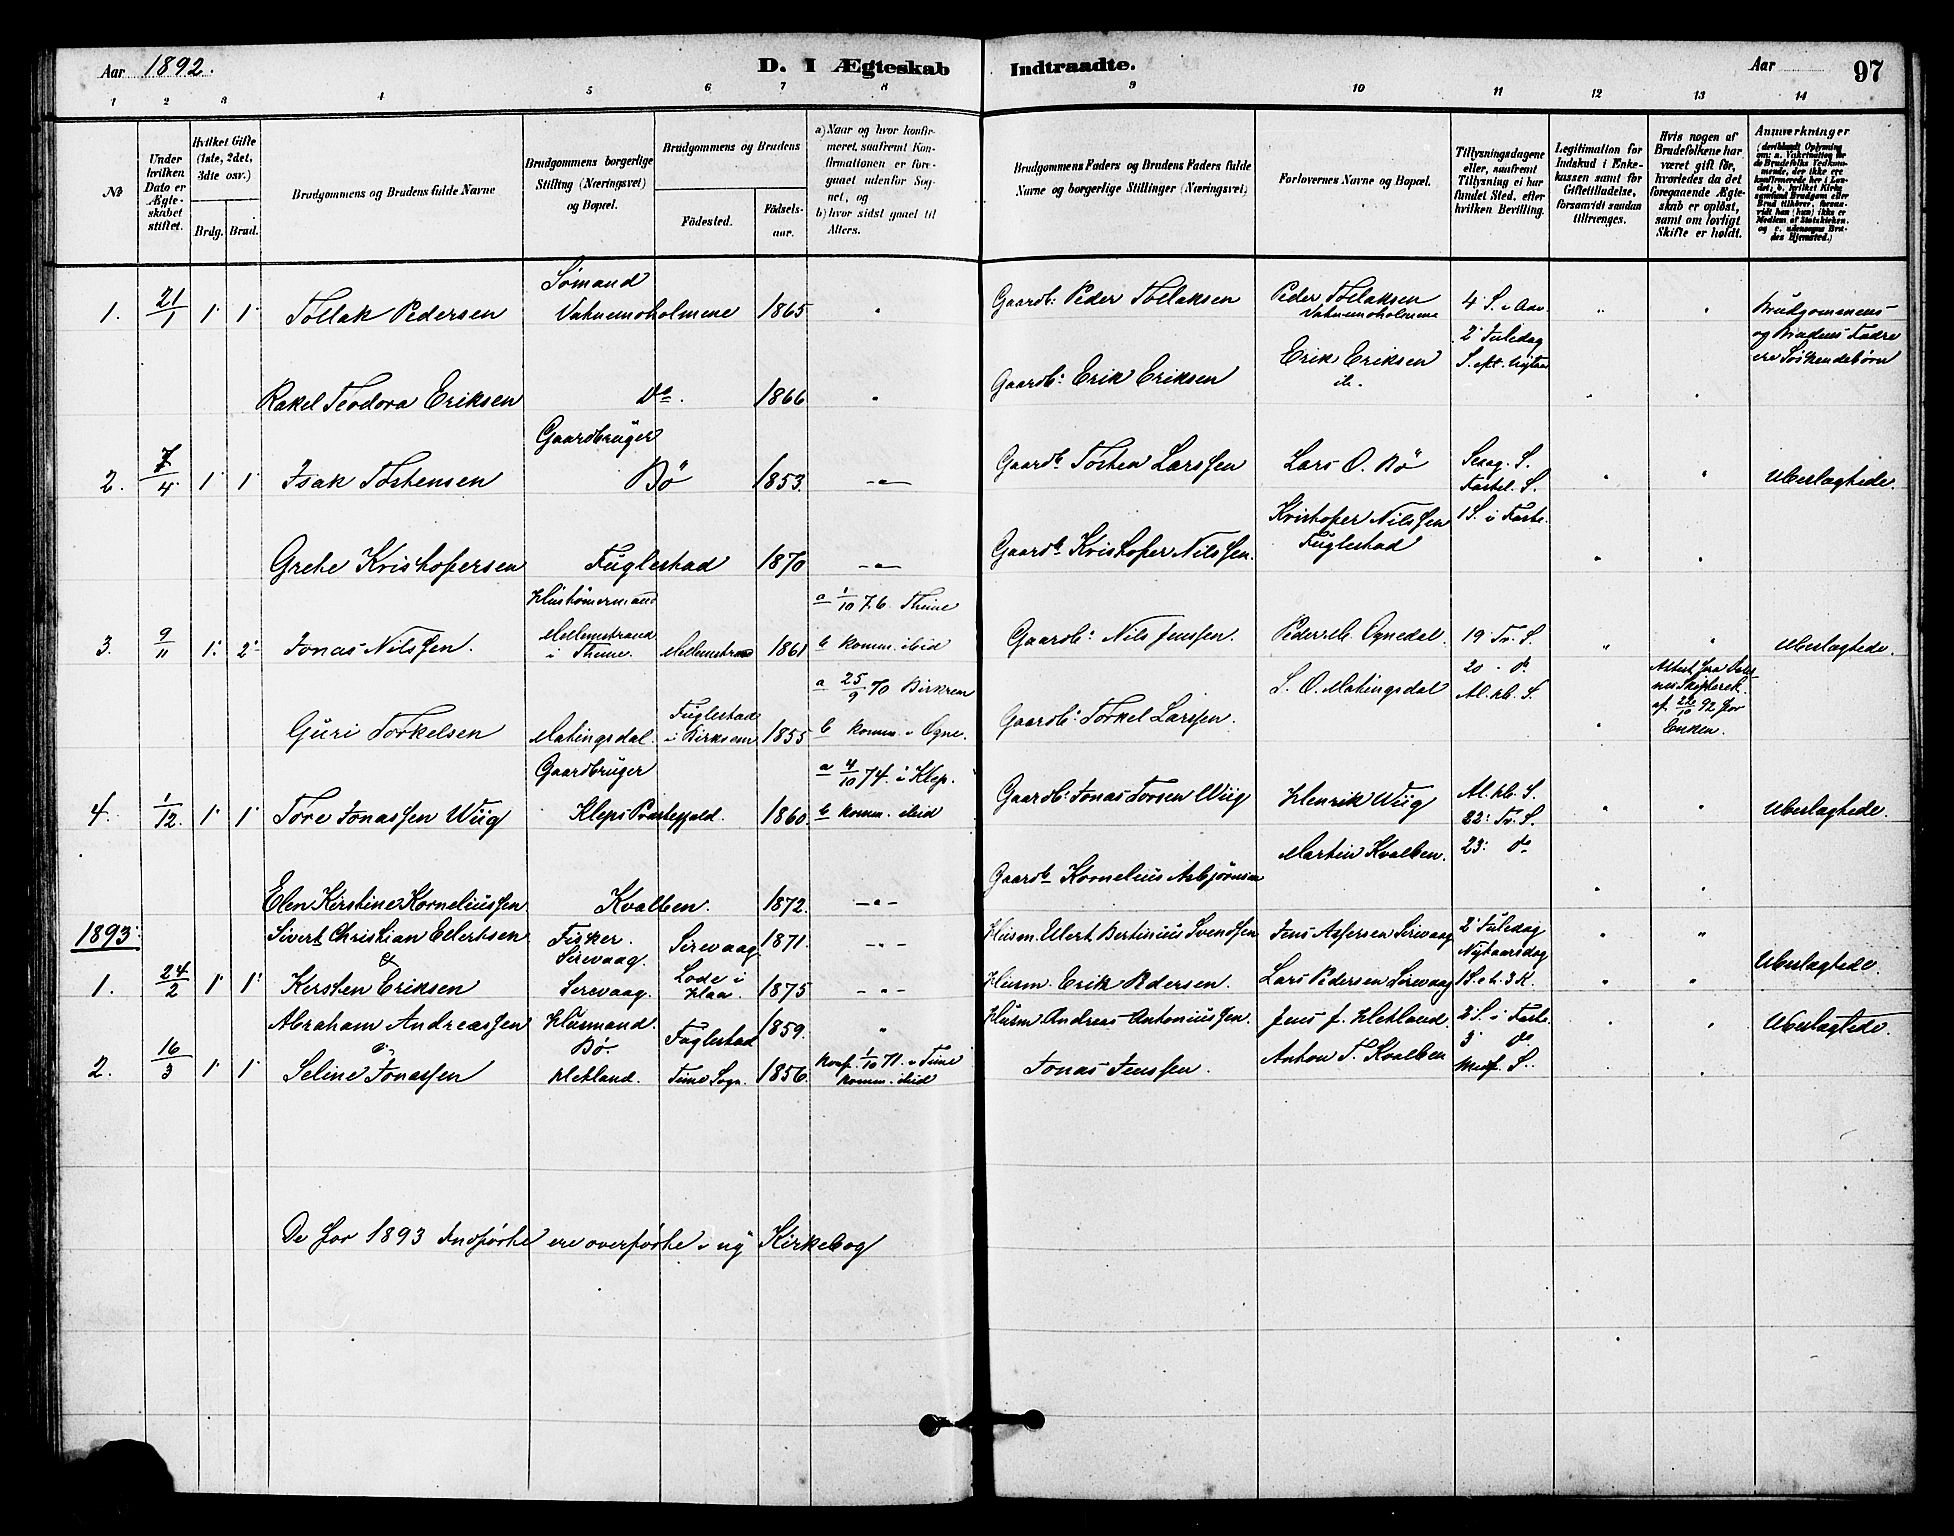 Aar 1892.
D. I Ægteskab Indtraadte.
Aar
97
1 2 3 4 5 6 7 8 9 10 11 12 13 14
№
Under hvilken Dato er Ægteskabet stiftet.
Hvilket Gifte (1ste, 2det, 3dte osv.)
Brdg. Brud.
Brudgommens og Brudens fulde Navne
Brudgommens borgerlige Stilling (Næringsvei) og Bopæl.
Brudgommens og Brudens
Fødested.
Fødselsaar.
a) Naar og hvor konfirmeret, saafremt Konfirmationen er foregaaet udenfor Sognet, og
b) hvor sidst gaaet til Alters.
Brudgommens Faders og Brudens Faders fulde Navne og borgerlige Stillinger (Næringsvei)
Forlovernes Navne og Bopæl.
Tillysningsdagene eller, saafremt Tillysning ei har fundet Sted, efter hvilken Bevilling.
Legitimation for Indskud i Enkekassen samt for Giftetilladelse, forsaavidt saadan tiltrænges.
Hvis nogen af Brudefolkene har været gift før, hvorledes da det foregaaende Ægteskab er opløst, samt om lovligt Skifte er holdt.
Anmærkninger
1. 21/1 1. 1. Tollak Pedersen Sømand Vatnemoholmene 1865 " Gaardb: Peder Tollaksen Peder Tollaksen Vatnemoholmene 4 S. i Adv. 2 Juledag S. eft. Nytaar " " Brudgommens og Brudens Fædre ere Søskendebørn
Rakel Teodora Eriksen Do. 1866 " Gaardb: Erik Eriksen Erik Eriksen ib. " "
2. 7/4 1. 1. Isak Tostensen Gaardbruger Bø 1853. -"- Gaardb. Tosten Larssen Lars O. Bø Sexag. S. Fastel. S. " " Ubeslægtede.
Grethe Kristofersen Fuglestad 1870 -"- Gaardb. Kristofer Nilssen. Kristofer Nilssen Fuglestad 1 S. i Faste. " "
3. 9/11 1. 2. Jonas Nilssen. Hustømermand Mellemstrand i Thime. Mellemstrand 1861 a 1/10 76. Thime b komm. ibid Gaardb: Nils Jenssen. Peder Ognedal. 19 Tr. S. " " Ubeslægtede.
Guri Torkelsen Matingsdal. Fuglestad i Birkrem 1855 a 25/9 70 Birkrem b komm. i Ogne. Gaardb: Torkel Larssen. S. O. Matingsdal 20 - do Al. hl. S. " Attest fra Dalernes Skifteret af 22/10 92 for Enken.
4. 1/12. 1. 1. Tore Jonassen Wiig Gaardbruger Kleps Præstegjeld. 1860. a 4/10 74. i Klep. b komm. ibid Gaardb: Jonas Torsen Wiig Henrik Wiig Al. hl. S. 22: Tr. S. " " Ubeslægtede.
Elen Kirstine Korneliussen Kvalben. 1872. -"- Gaardb. Kornelius Asbjørnsen Martin Kvalben. 23: do " "
1893.
Sivert Christian Eilertsen Fisker. Sirevaag. Sirevaag 1871. -"- Husm. Eilert Bertinius Svendsen Jens Asfersen Sirevaag 2 Juledag Nytaarsdag " "
1. 24/2 1. 1. & Kersten Eriksen Sirevaag. Lode i Haa. 1875 -"- Husm. Erik Pedersen. Lars Pedersen Sirevaag 1 S. e. h. 3 K. " " Ubeslægtede.
Abraham Andreassen Husmand. Bø. Fuglestad 1859. " Husm Andreas Antoniussen. Jens J. Hetland. 2 S. i Faste. " " Ubeslægtede.
2. 16/3 1. 1. & Seline Jonassen Hetland. Time Sogn. 1856 Konf. 1/10 71. i Time komm. ibid Jonas Jenssen. Anton T. Kvalben 3 do Midf. S. " "
De for 1893 Indførte ere overførte i ny Kirkebog